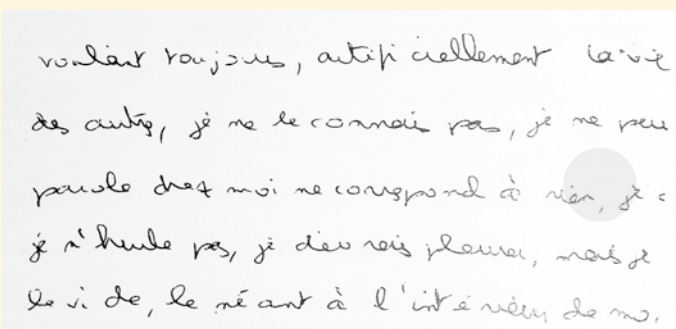 voulant toujours, artificiellement la vie
des autres, je ne le connais pas, je ne peu
parole chez moi ne correspond à rien, je
je n'hurle pas, je devrais pleurer, mais je
le vide, le néant à l'intérieur de mo